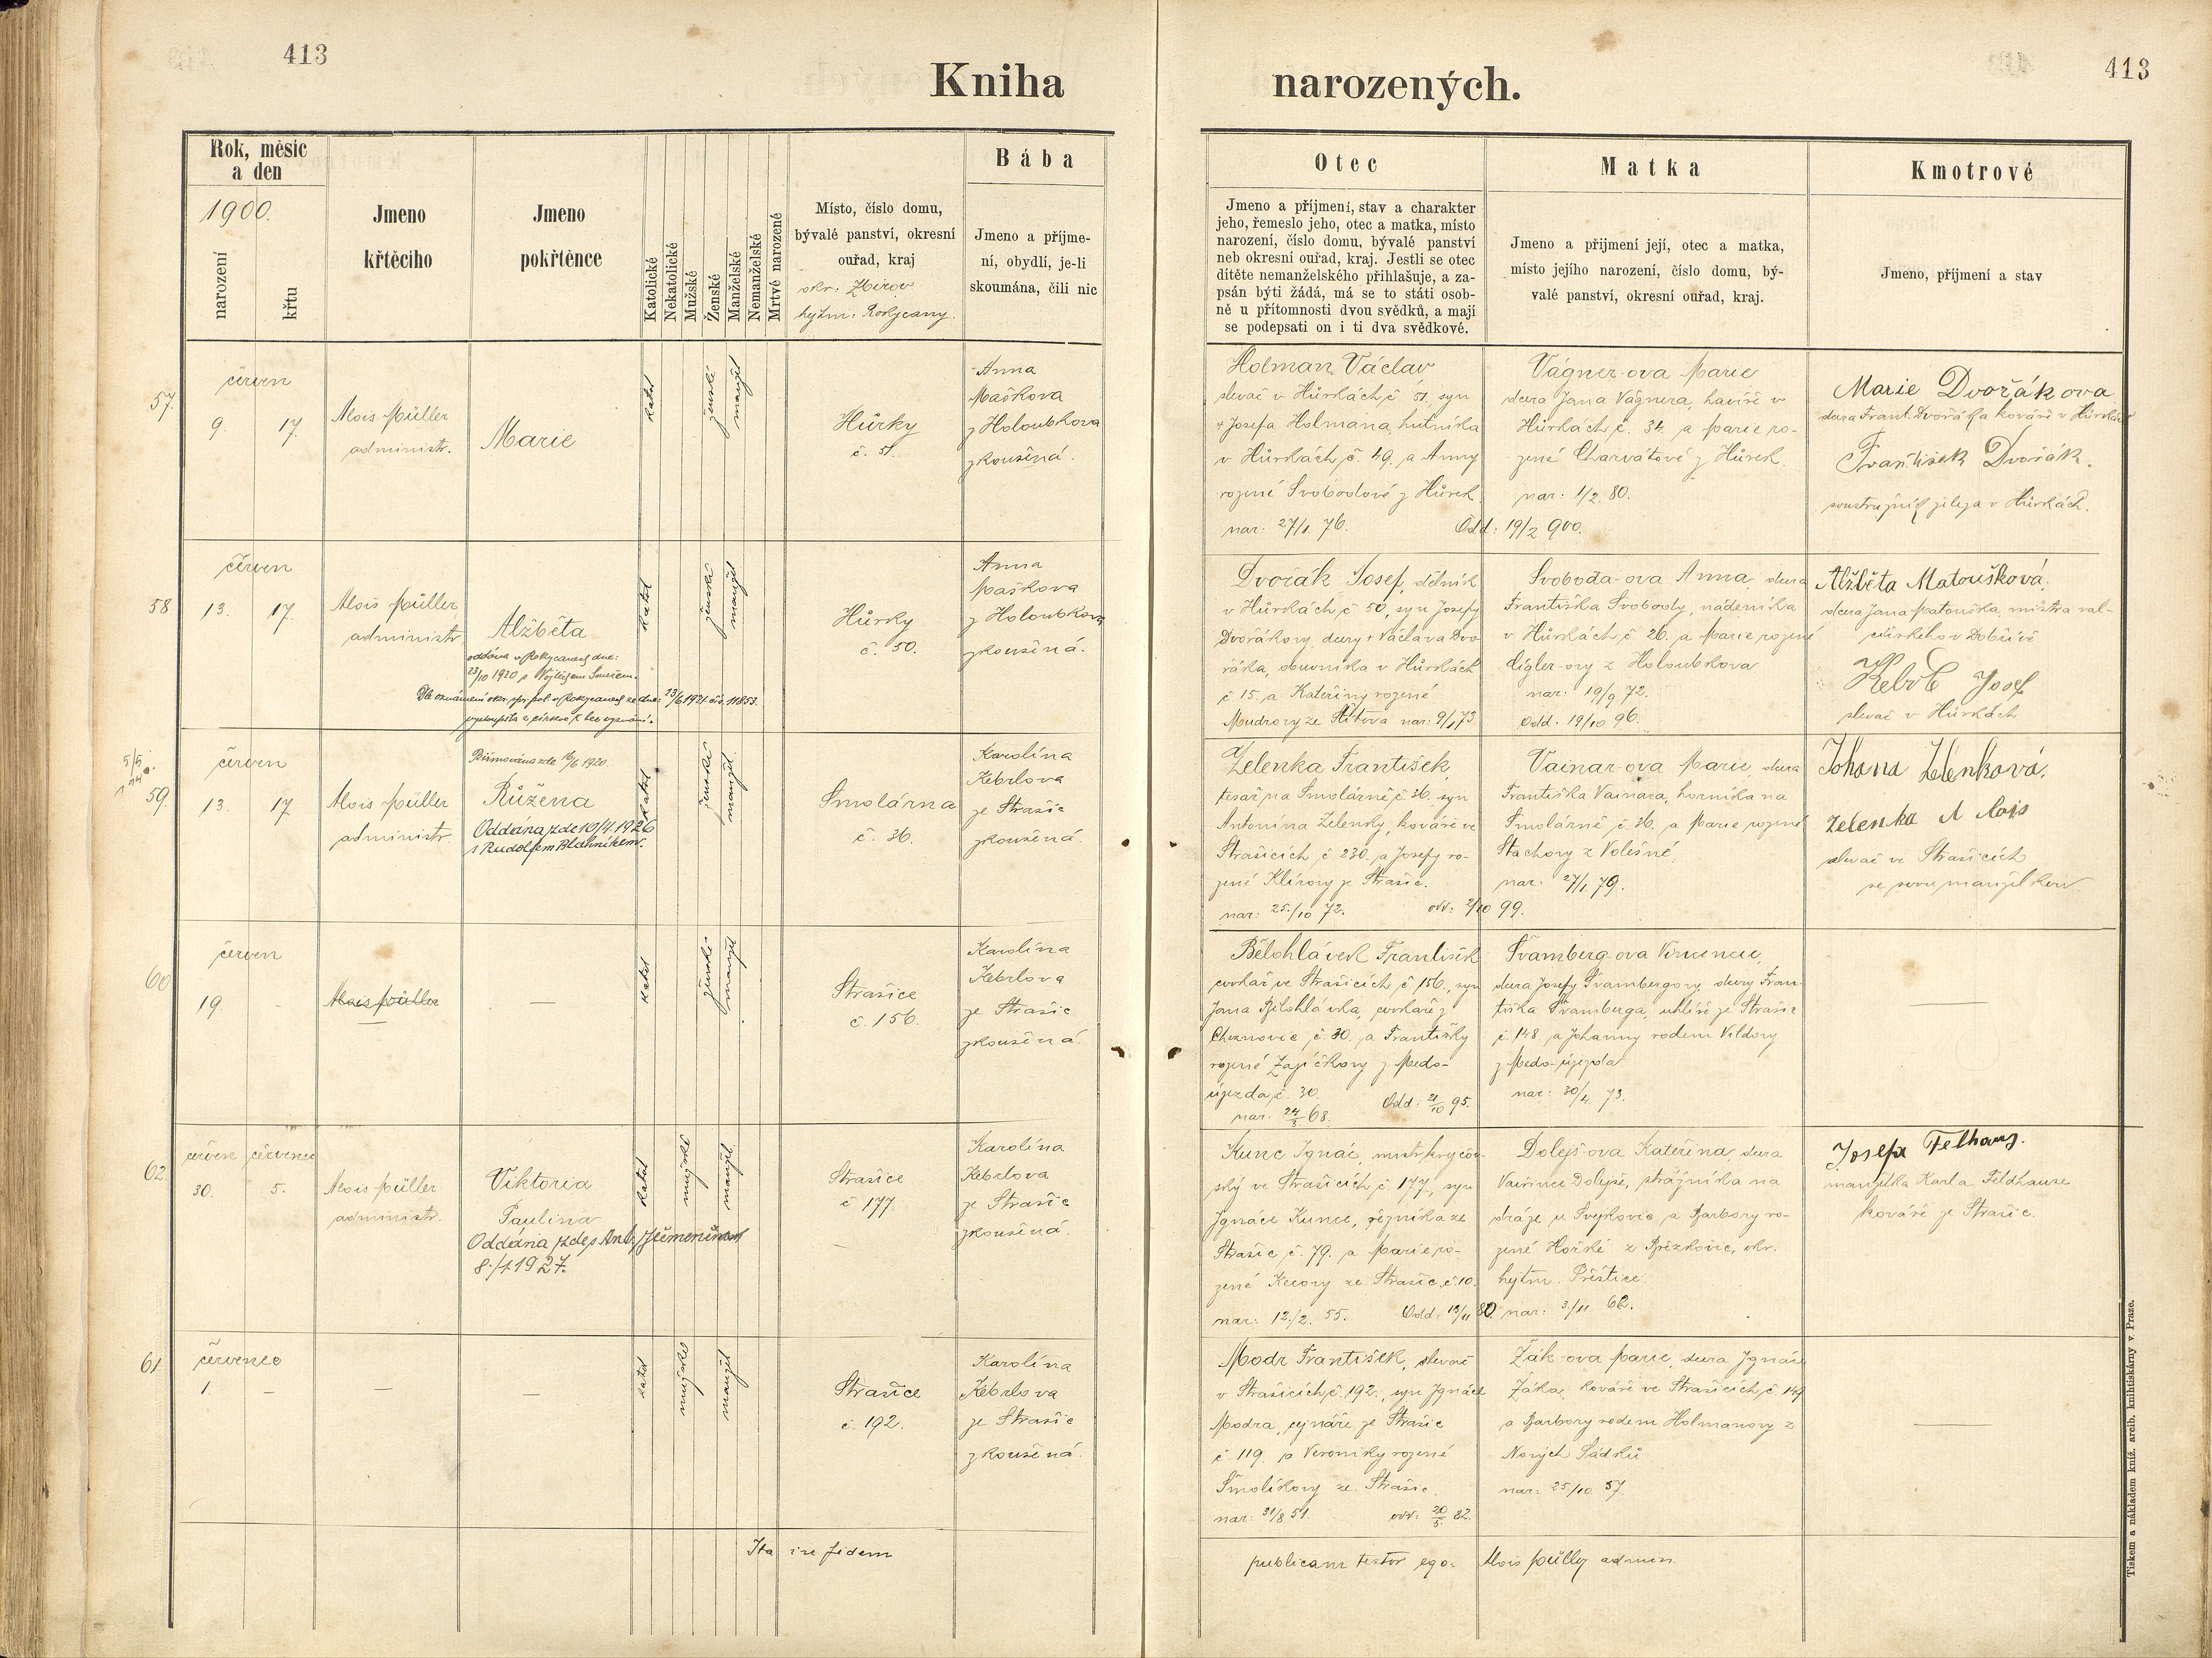 413
413
Kniha narozených.
Rok, měsíc
a den
1900.
narození
křtu
Jmeno
křtěcího
Jmeno
pokřtěnce
Katolické
Nekatolické
Mužské
Ženské
Manželské
Nemanželské
Mrtvě narozené
Místo, číslo domu,
bývalé panství, okresní
ouřad, kraj
okr: Zbirov
hejtm: Rokycany.
Bába
Jmeno a příjme-
ní, obydlí, je-li
skoumána, čili nic
Otec
Jmeno a příjmení, stav a charakter
jeho, řemeslo jeho, otec a matka, místo
narození, číslo domu, bývalé panství
neb okresní ouřad, kraj. Jestli se otec
dítěte nemanželského přihlašuje, a za-
psán býti žádá, má se to státi osob-
ně u přítomnosti dvou svědků, a mají
se podepsati on i ti dva svědkové.
Matka
Jmeno a přijmení její, otec a matka,
místo jejího narození, číslo domu, bý-
valé panství, okresní ouřad, kraj.
Kmotrové
Jmeno, příjmení a stav
57.
červen
9. 17.
Alois Müller
administr.
Marie
katol
ženské
manžel
Hůrky
č. 51.
Anna
Maškova
z Holoubkova
zkoušená.
Holman Václav
slevač v Hůrkách č 51, syn
† Josefa Holmana, hutníka
v Hůrkách č. 49. a Anny
rozené Svobodové z Hůrek
nar: 27/1 76.
Odd: 19/2 900.
Vágner-ova Marie
dcera Jana Vágnera, havíře v
Hůrkách č. 34. a Marie ro-
zené Charvátové z Hůrek.
nar: 1/2 80.
Marie Dvořákova
dcera Frant. Dvořáka kováře v Hůrkách
František Dvořák.
soustružník železa v Hůrkách.
58
červen
13. 17.
Alois Müller
administr
Alžběta
oddána v Rokycanech dne:
23/10 1920 s Vojtěchem
Dle oznámení okr. spr. pol. v Rokycanech ze dne: 23/6 1921 čís. 11853.
vystoupila z církve k bez vyznání.
katol
ženské
manžel
Hůrky
č. 50.
Anna
Maškova
z Holoubkova
zkoušená.
Dvořák Josef, dělník
v Hůrkách č 50, syn Josefy
Dvořákovy, dcery † Václava Dvo-
řáka, obuvníka v Hůrkách
č 15. a Kateřiny rozené
Mudrovy ze Štítova nar: 9/1 73.
Svoboda-ova Anna, dcera
Františka Svobody, nádeníka
v Hůrkách č 26. a Marie rozené
Cígler-ovy z Holoubkova
nar: 19/9 72.
Odd: 19/10 96.
Alžběta Matoušková.
dcera Jana Matouška, mistra val-
cířského v Dobřívě
Josef
slevač v Hůrkách
59.
červen
13. 17
Alois Müller
administr.
Biřmována zde 16/6 1920.
Růžena
Oddána zde 10/4.1926
s Rudolfem Blahníkem.
katol
ženské
manžel.
Smolárna
č. 36.
Karolína
Kebrlova
ze Strašic
zkoušená
Zelenka František
tesař na Smolárně č 36. syn
Antonína Zelenky, kováře ve
Strašicích č 230. a Josefy ro-
zené Klírovy ze Strašic.
nar: 25/10 72.
odd: 2/10 99.
Vainar-ova Marie, dcera
Františka Vainara, horníka na
Smolárně č. 36. a Marie rozené
Stachovy z Volešné.
nar: 27/1 79.
Johana Zelenková.
Zelenka Alois
slevač ve Strašicích
se svou manželkou
60
červen
19. -
Alois Müller
—
katol
ženské
manžel
Strašice
č. 156.
Karolína
Kebrlova
ze Strašic
zkoušená.
Bělohlávek František
cvokař ve Strašicích č 156., syn
Jana Bělohlávka, cvokaře z
Cheznovic č 30. a Františky
rozené Zajíčkovy z Medo-
újezda č. 30.
nar. 24/3 68.
Odd: 21/10 95.
Švamberg-ova Vincencie,
dcera Josefy Švambergovy, dcery Fran-
tiška Švamberga, uhlíře ze Strašic
č. 148 a Johanny rodem Vildovy
z Medo-újezda
nar: 30/4 73.
—
62.
červen červenec
30. 5.
Alois Müller
administr.
Viktoria
Paulina
Oddána zde s Ant.
8./1 1927.
katol
mužské
manžel.
Strašice
č 177.
Karolína
Kebrlova
ze Strašic
zkoušená.
Kunc Ignác, mistr
ský ve Strašicích č. 177., syn
Ignáce Kunce, řezníka ze
Strašic č. 79. a Marie ro-
zené ze Strašic č 10.
nar: 12./2. 55.
Odd: 13/11 80.
Dolejš-ova Kateřina, dcera
Vavřince Dolejše, strážníka na
dráze u Švejkovic a Barbory ro-
zené Horké z okr.
hejtm. Přeštice.
nar: 3/11 62.
Josefa Felhaus.
manželka Karla Feldhause
kováře ze Strašic.
61.
červenec
1. -
—
—
katol
mužské
manžel
Strašice
č. 192.
Karolína
Kebrlova
ze Strašic
zkoušená.
Modr František, slevač
v Strašicích č. 192., syn Ignáce
Modra, cejnáře ze Strašic
č 119. a Veroniky rozené
Smolíkovy ze Strašic.
nar: 31/8 51.
odd: 20/5 82.
Žák-ova Marie, dcera Ignáce
Žáka, kováře ve Strašicích, č 149
a Barbory rodem Holmanovy z
Nových Sádků
nar: 25/10 57.
—
Ita in fidem publicam testor ego: Alois Müller admin.
Tiskem a nákladem kníž. arcib. knihtiskárny v Praze.